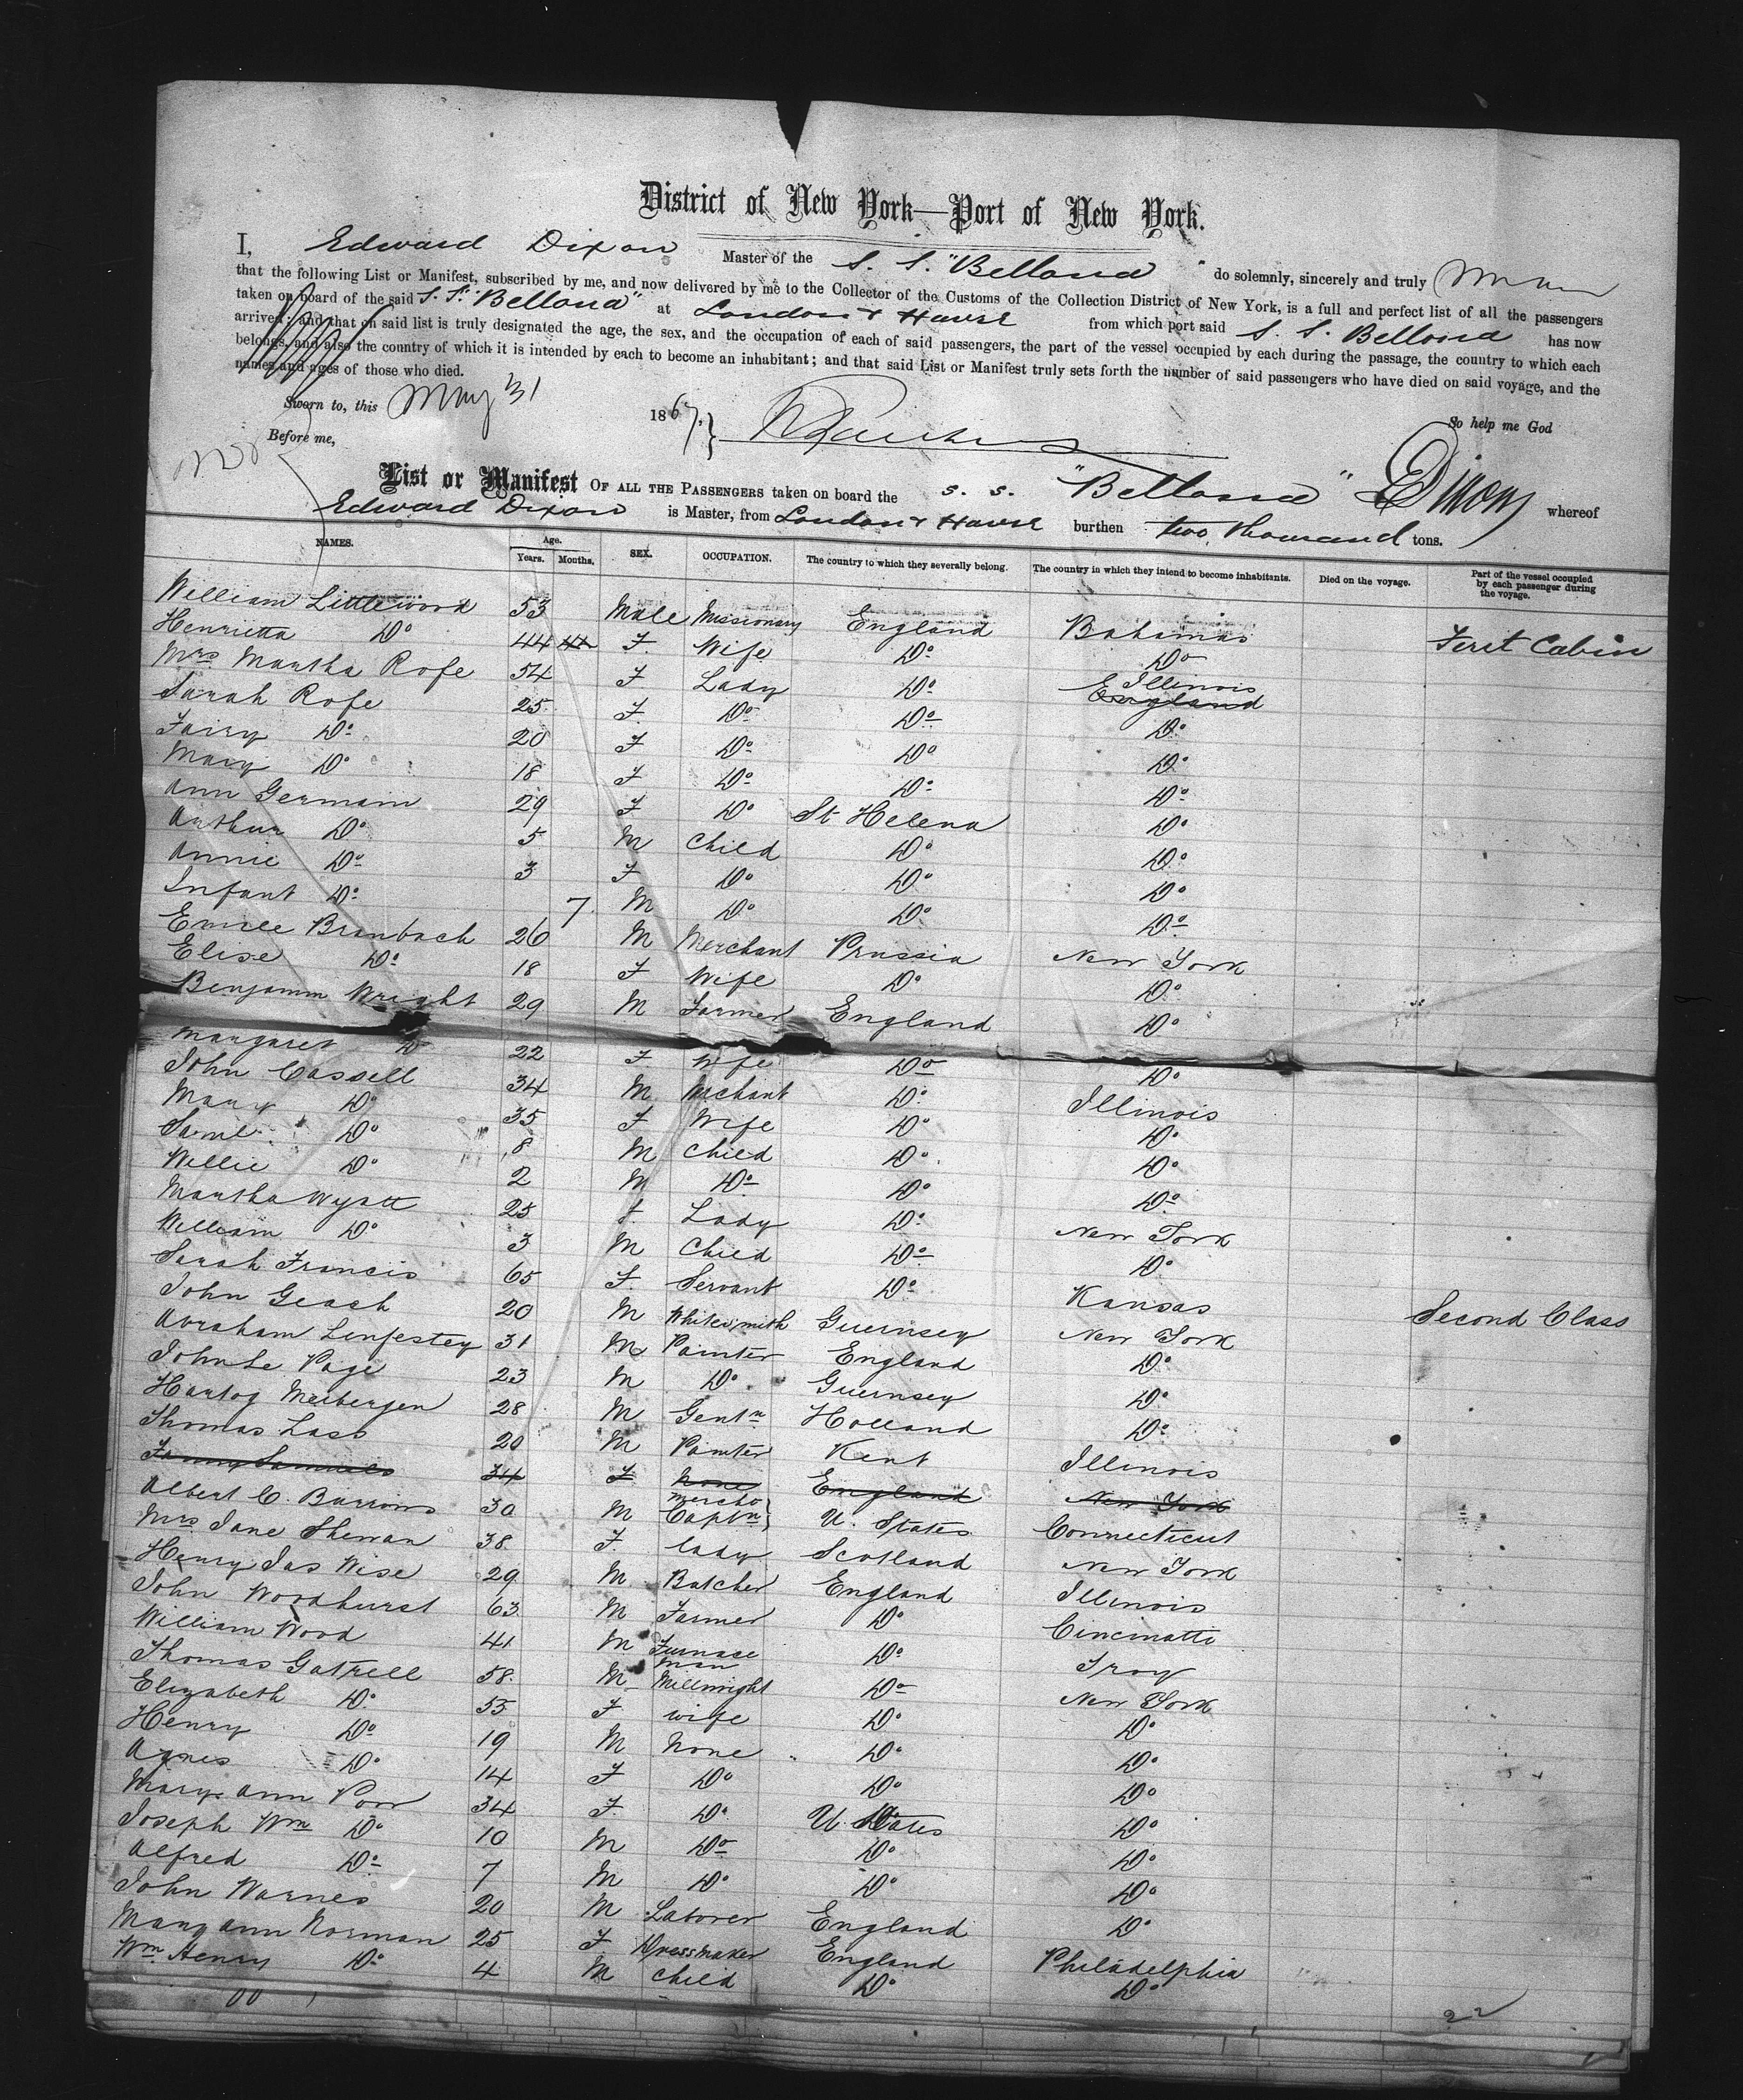 District of New York—Port of New York.
I, Edward Dixon Master of the S. S. "Bellona" do solemnly, sincerely and truly
that the following List or Manifest, subscribed by me, and now delivered by me to the Collector of the Customs of the Collection District of New York, is a full and perfect list of all the passengers
taken on board of the said S. S. "Bellona" at London & Havre from which port said S. S. Bellona has now
arrived; and that on said list is truly designated the age, the sex, and the occupation of each of said passengers, the part of the vessel occupied by each during the passage, the country to which each
belongs, and also the country of which it is intended by each to become an inhabitant; and that said List or Manifest truly sets forth the number of said passengers who have died on said voyage, and the
names and ages of those who died.
Sworn to, this May 31 1867. So help me God
Before me,
List or Manifest OF ALL THE PASSENGERS taken on board the S. S. "Bellona" EDixon whereof
Edward Dixon is Master, from London & Havre burthen two thousand tons.
NAMES. Age. Years. Months. SEX. OCCUPATION. The country to which they severally belong. The country in which they intend to become inhabitants. Died on the voyage. Part of the vessel occupied by each passenger during the voyage.
William Littlewood 53 Male Missionary England Bahamas First Cabin
Henrietta Do 44 44 F. Wife Do Do
Mrs Martha Rofe 54 F Lady Do England Illinois
Sarah Rofe 25 F. Do Do Do
Fairy Do 20 F Do Do Do
Mary Do 18 F Do Do Do
Ann Germain 29 F Do St Helena Do
Arthur Do 5 M Child Do Do
Annie Do 3 F Do Do Do
Infant Do 7. M Do Do Do
Emile Branbach 26 M Merchant Prussia New York
Elise Do 18 F Wife Do Do
Benjamin Wright 29 M Farmer England Do
Margaret Do 22 F Wife Do Do
John Cassell 34 M Merchant Do Illinois
Mary Do 35 F Wife Do Do
Saml. Do 8 M Child Do Do
Willie Do 2 M Do Do Do
Martha Wyatt 25 f. Lady Do New York
William Do 3 M Child Do Do
Sarah Francis 65 F. Servant Do Kansas
John Geach 20 M Whitesmith Guernsey New York Second Class
Abraham Lenfestey 31 M Painter England Do
John Le Page 23 M Do Guernsey Do
Hartog Meibergen 28 M Gentn Holland Do
Thomas Lass 20 M Painter Kent Illinois
Fanny Samuels 34 F None England New York
Albert C. Burrows 30 M Merch Captn U. States Connecticut
Mrs Jane Shewan 38 F. lady Scotland New York
Henry Jas Wise 29 M Butcher England Illinois
John Woodhurst 63 M Farmer Do Cincinatti
William Wood 41 M Furnace man Do Troy
Thomas Gatrell 58. M Millwright Do New York
Elizabeth Do 55 F wife Do Do
Henry Do 19 M None Do Do
Agnes Do 14 F Do Do Do
Mary Ann Porr 34 F. Do U States Do
Joseph Wm Do 10 M Do Do Do
Alfred Do 7 M Do Do Do
John Warnes 20 M Laborer England Do
Mary Ann Norman 25 F Dressmaker England Philadelphia
Wm Henry Do 4 M Child Do Do